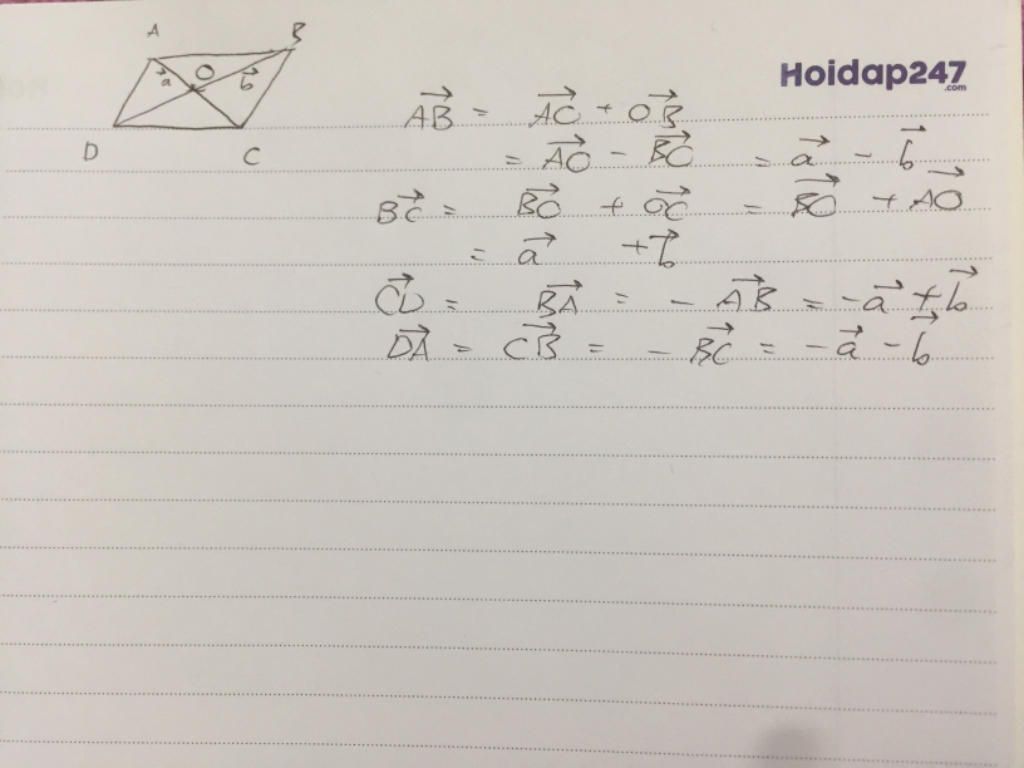 A B
O
a⃗ b⃗
D C
Hoidap247
.com
A͞B⃗ = A͞O⃗ + O͞B⃗
= A͞O⃗ - B͞O⃗ = a⃗ - b⃗
B͞C⃗ = B͞O⃗ + O͞C⃗ = B͞O⃗ + A͞O⃗
= a⃗ + b⃗
C͞D⃗ = B͞A⃗ = - A͞B⃗ = -a⃗ + b⃗
D͞A⃗ = C͞B⃗ = - B͞C⃗ = -a⃗ - b⃗